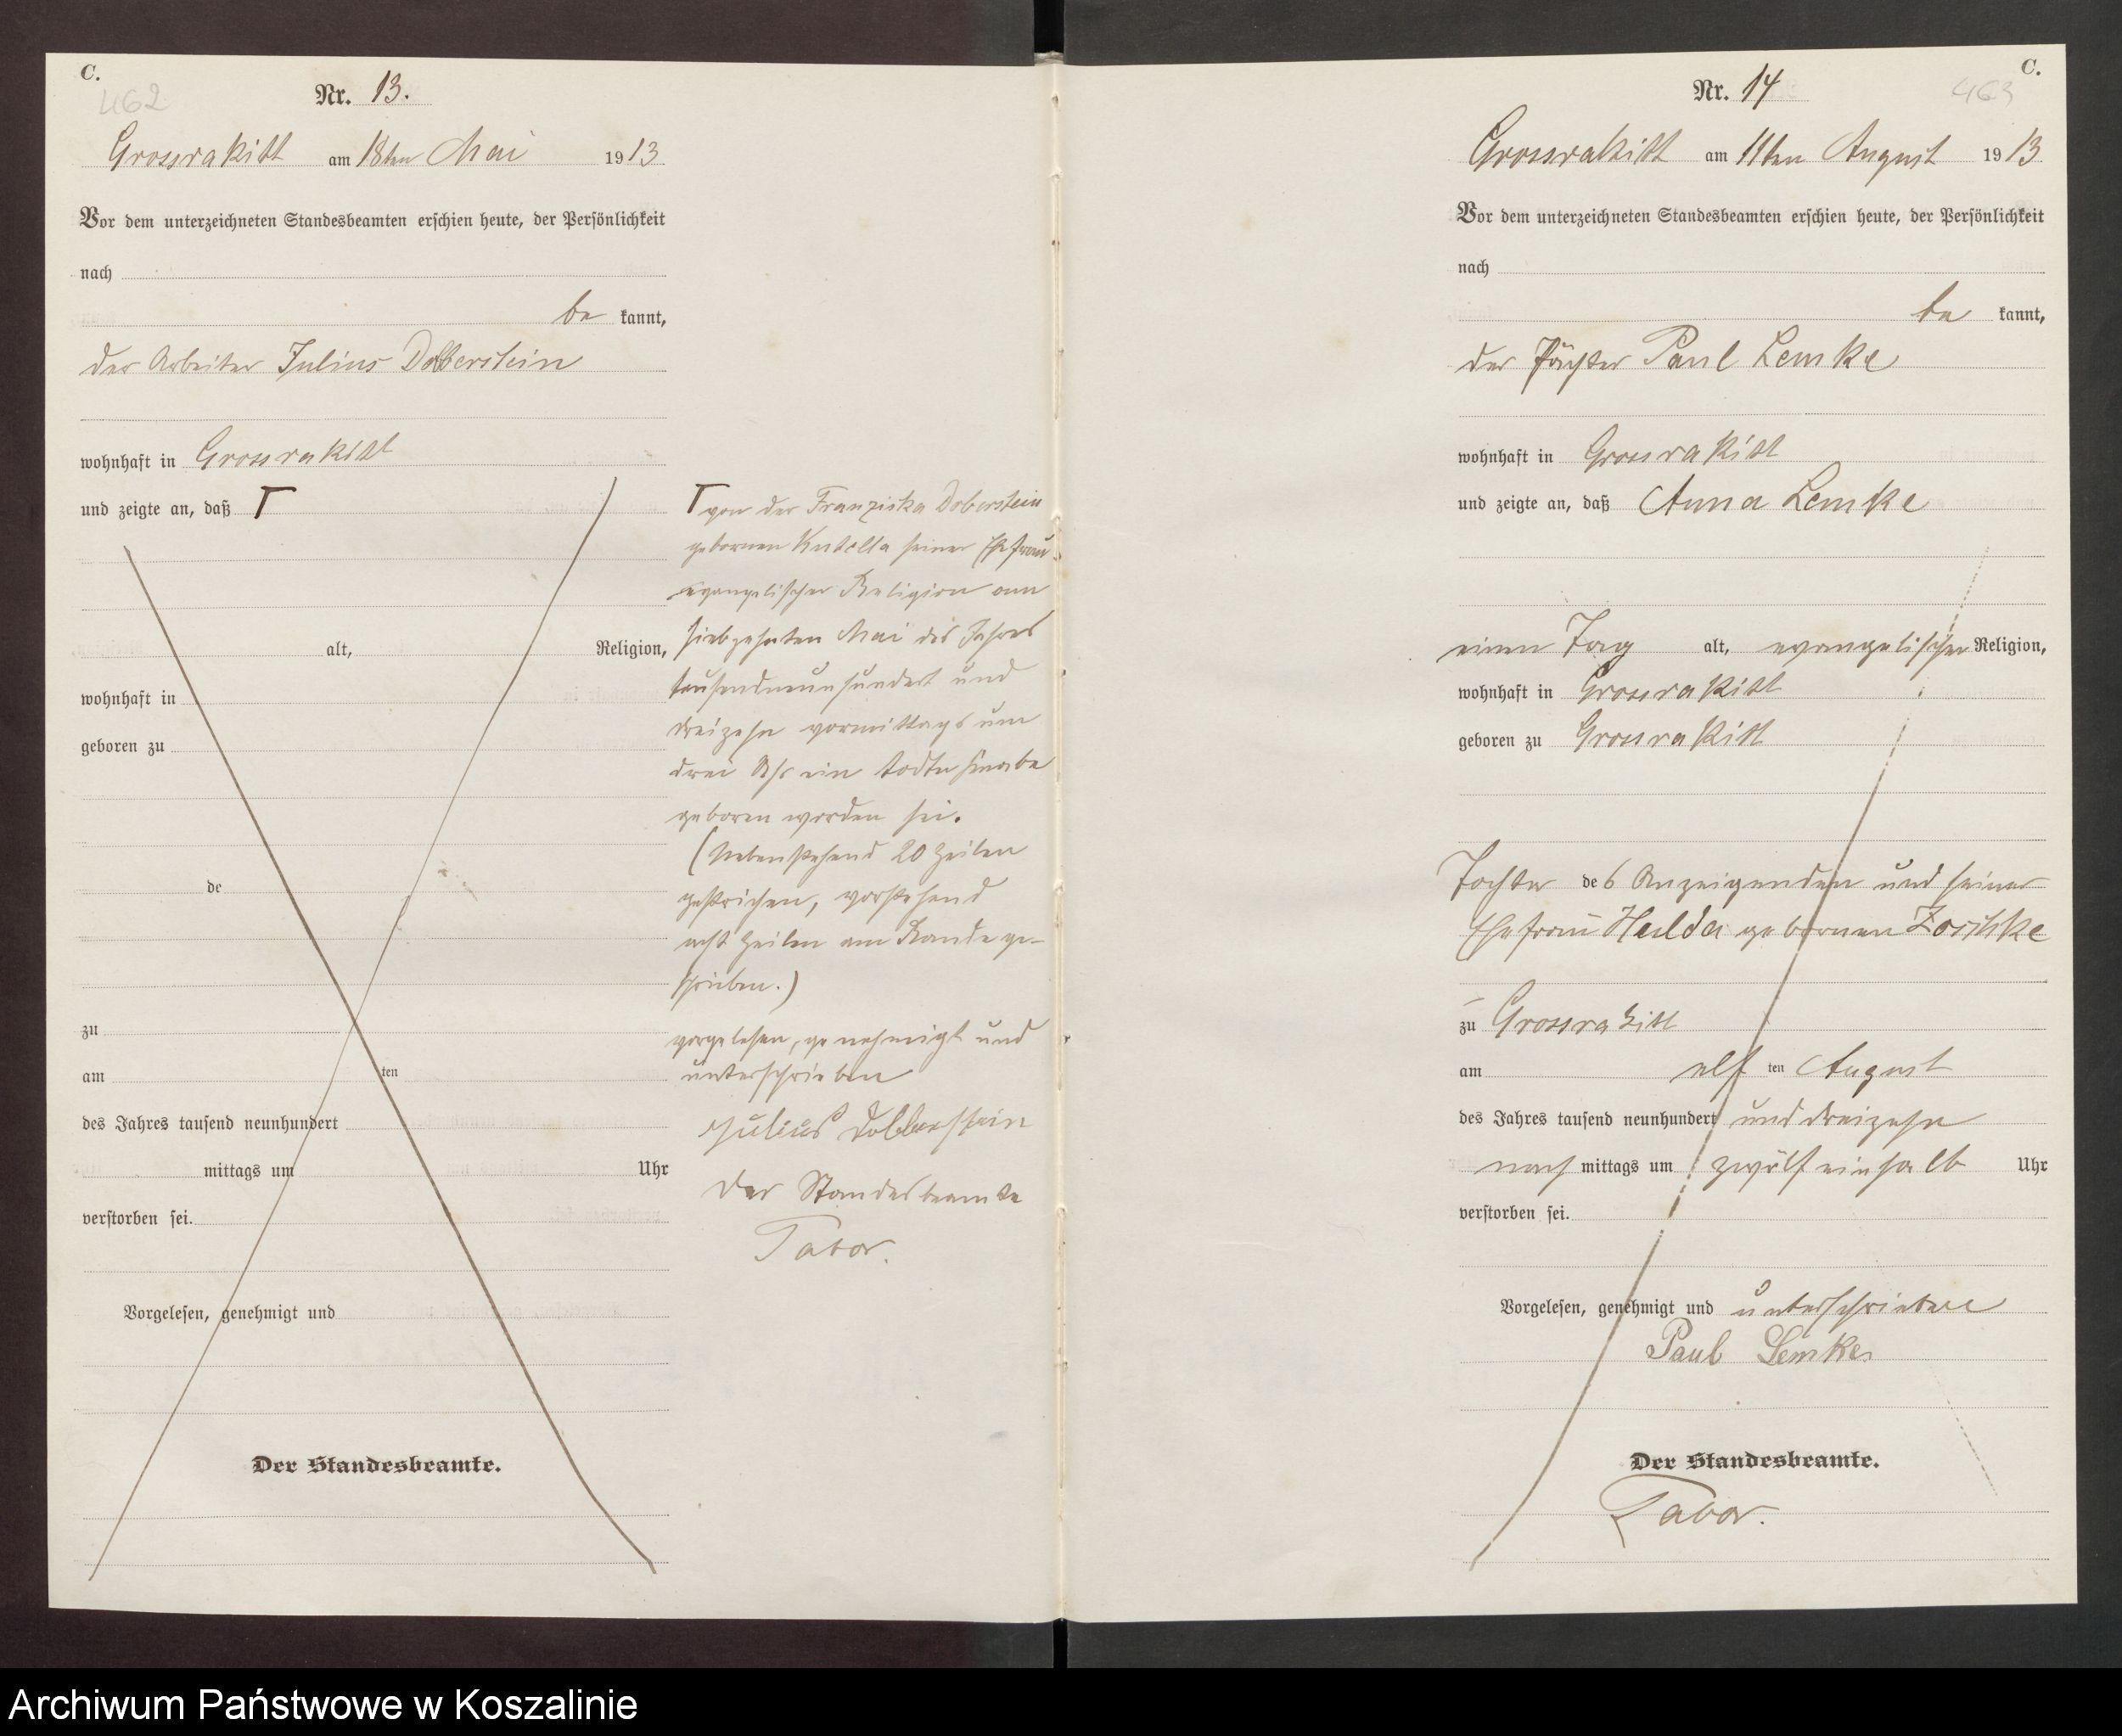 C.
462
Nr. 13.
Grossrakitt am 18ten Mai 1913
Vor dem unterzeichneten Standesbeamten erschien heute, der Persönlichkeit
nach
be kannt,
der Arbeiter Julius Dobberstein
wohnhaft in Grossrakitt
und zeigte an, daß
alt, Religion,
wohnhaft in
geboren zu
de
zu
am ten
des Jahres tausend neunhundert
mittags um Uhr
verstorben sei.
Vorgelesen, genehmigt und
Der Standesbeamte.
von der Franziska Doberstein
gebornen Kutella seiner Ehefrau
evangelischer Religion am
siebzehnten Mai des Jahres
tausendneunhundert und
dreizehn vormittags um
drei Uhr ein todter Knabe
geboren worden sei.
(Nebenstehend 20 Zeilen
gestrichen, vorstehend
acht Zeilen am Rande ge-
schrieben.)
vorgelesen, genehmigt und
unterschrieben
Julius Dobberstein
Der Standesbeamte
Tabor.
C.
463
Nr. 14
Grossrakitt am 11ten August 1913
Vor dem unterzeichneten Standesbeamten erschien heute, der Persönlichkeit
nach
be kannt,
der Pächter Paul Lemke
wohnhaft in Grossrakitt
und zeigte an, daß Anna Lemke
einen Tag alt, evangelischer Religion,
wohnhaft in Grossrakitt
geboren zu Grossrakitt
Tochter des Anzeigenden und seiner
Ehefrau Hulda gebornen Zoschke
zu Grossrakitt
am elf ten August
des Jahres tausend neunhundert und dreizehn
nach mittags um zwölfeinhalb Uhr
verstorben sei.
Vorgelesen, genehmigt und unterschrieben
Paul Lemke
Der Standesbeamte.
Tabor.
Archiwum Państwowe w Koszalinie